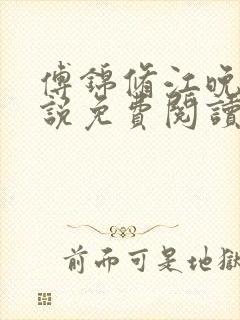 傅锦脩江晚
説免費閱讀
前面可是地獄